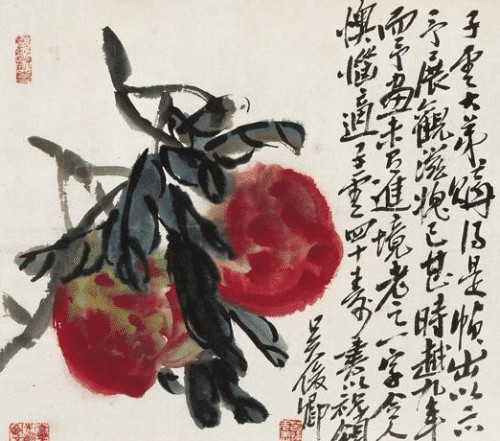 子雲大弟購得是幀出以示
予展觀滋愧已甚時越九年
而予畫未進境老之一字令人
懊惱適子雲四十壽書以祝嘏
吳俊卿